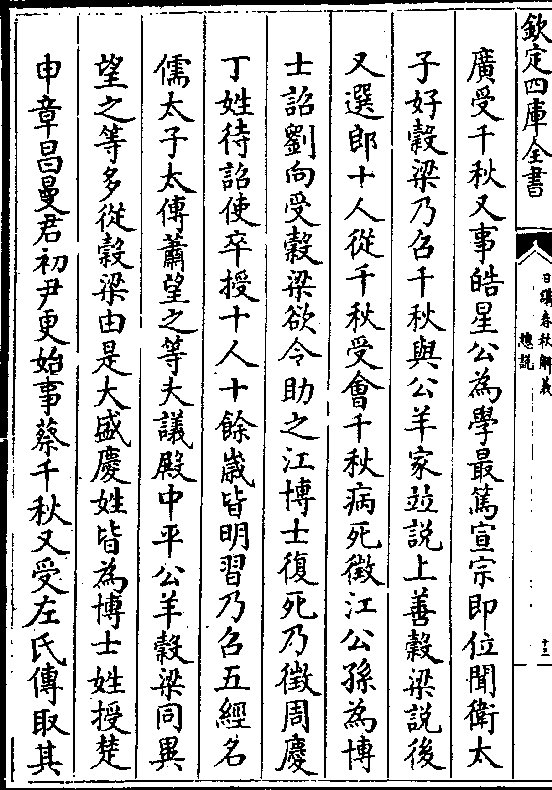 欽定四庫全書
日講春秋解義
總說
十三
廣受千秋又事皓星公為學最篤宣宗即位聞衛太
子好穀梁乃召千秋與公羊家並説上善穀梁説後
又選郎十人從千秋受會千秋病死徵江公孫為博
士詔劉向受穀梁欲令助之江博士復死乃徵周慶
丁姓待詔使卒授十人十餘嵗皆明習乃召五經名
儒太子太傅蕭望之等大議殿中平公羊穀梁同異
望之等多從穀梁由是大盛慶姓皆為博士姓授楚
申章昌曼君初尹更始事蔡千秋又受左氏傳取其